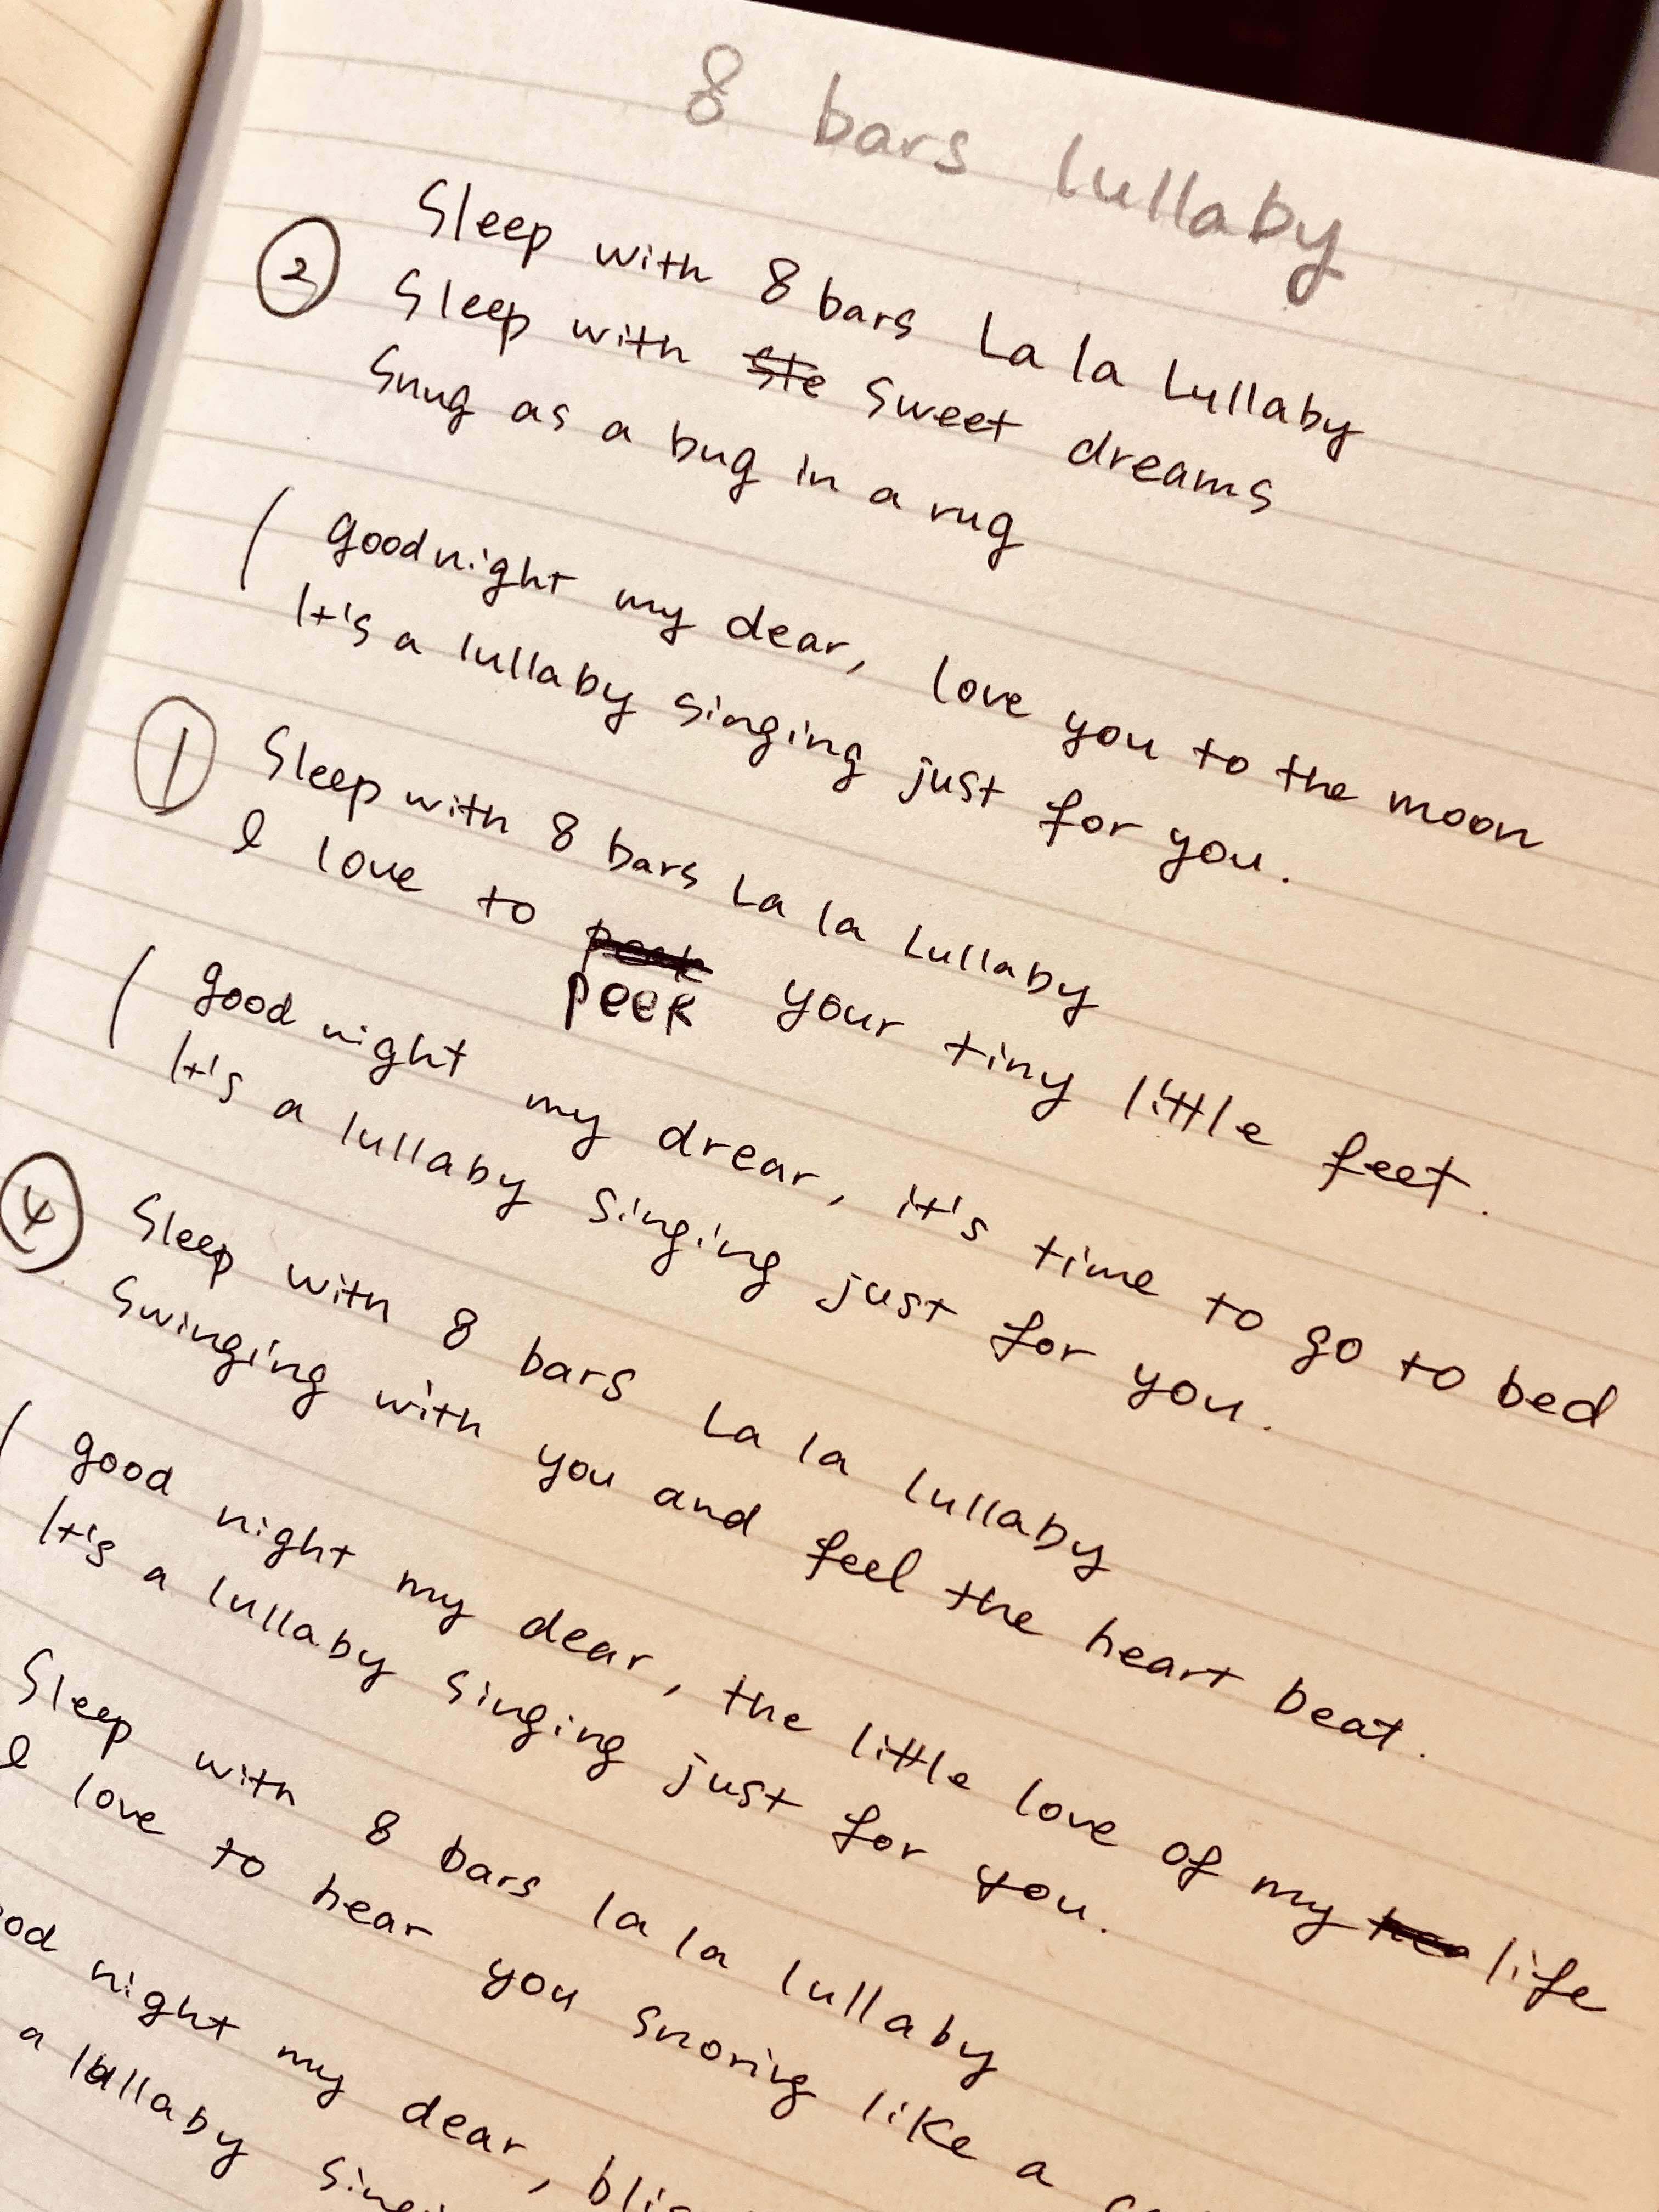 8 bars lullaby
Sleep with 8 bars La la Lullaby
② Sleep with ste sweet dreams
Snug as a bug in a rug
( goodnight my dear, love you to the moon
It's a lullaby singing just for you.
① Sleep with 8 bars La la Lullaby
I love to peek your tiny little feet.
( good night my drear, it's time to go to bed
It's a lullaby singing just for you.
④ Sleep with 8 bars La la lullaby
Swinging with you and feel the heart beat.
( good night my dear, the little love of my life
It's a lullaby singing just for you.
Sleep with 8 bars la la lullaby
I love to hear you snorig like a
night my dear,
a lullaby